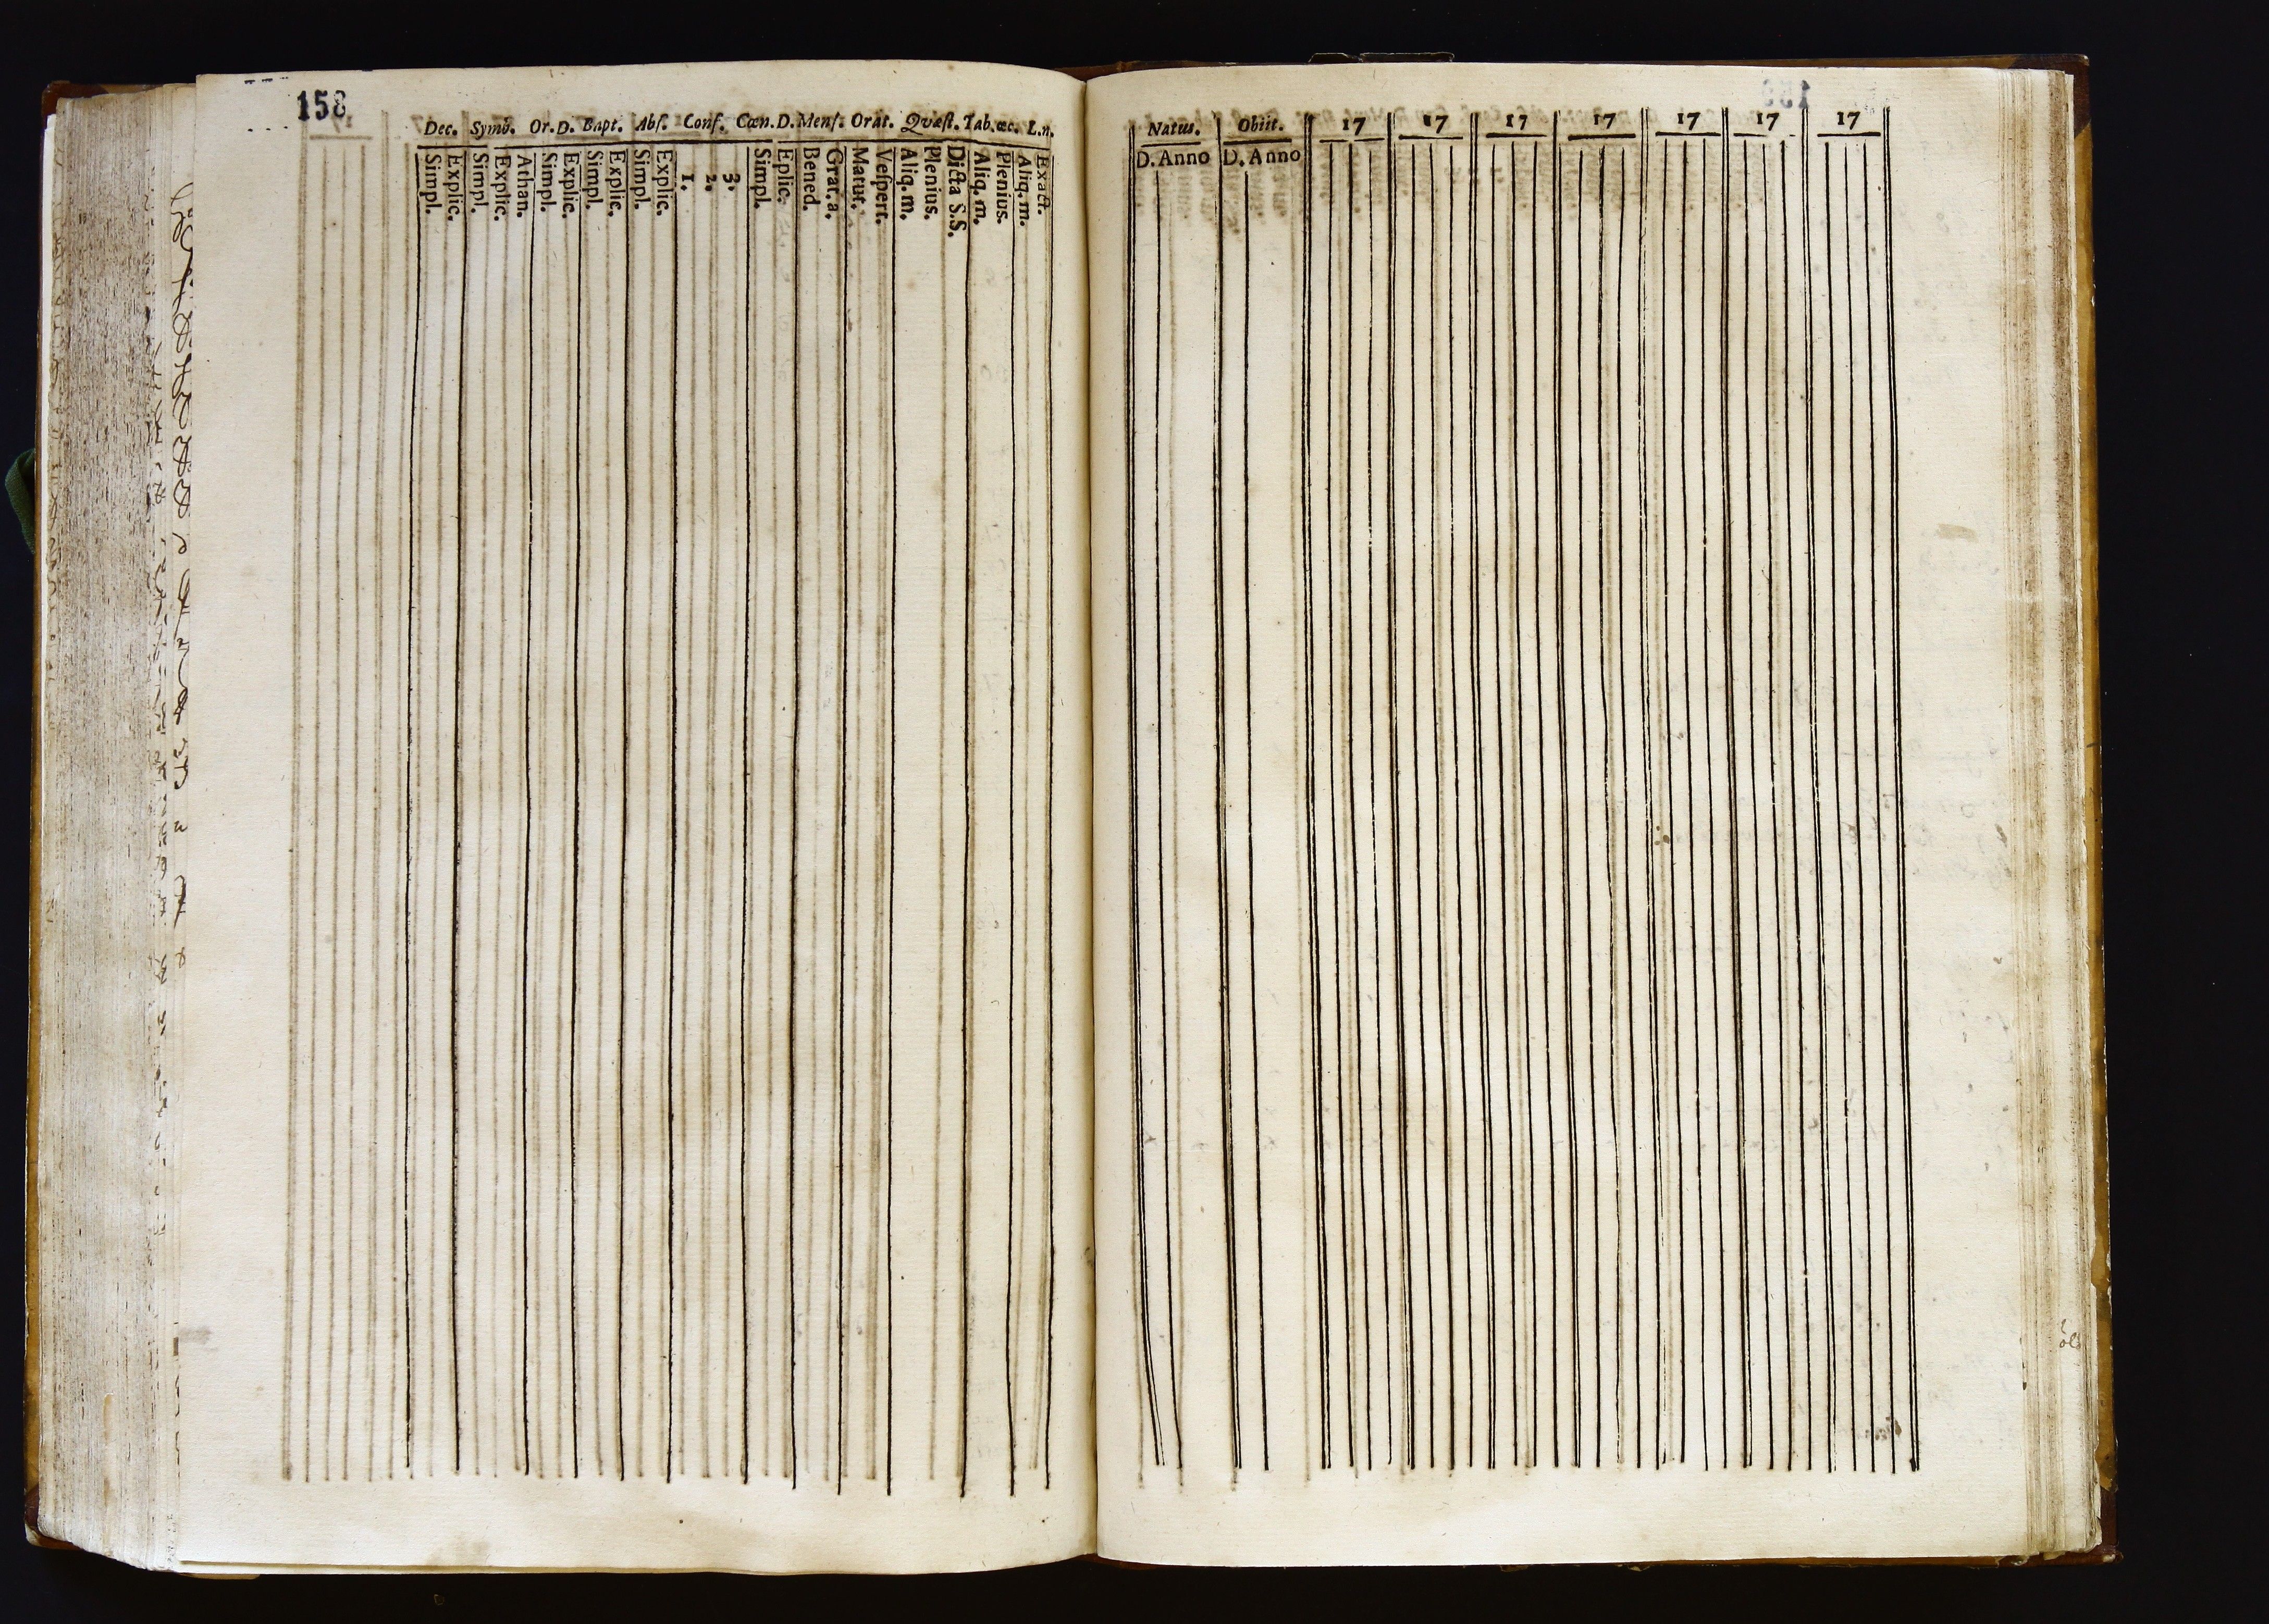 158
Dec. Symb. Or. D. Bapt. Abſ. Conf. Cœn. D. Menſ. Orat. Qvæſt. Tab. œc. L. n.
Simpl.
Explic.
Simpl.
Explic.
Athan.
Simpl.
Explic.
Simpl.
Explic.
Simpl.
Explic.
1.
2.
3.
Simpl.
Eplic.
Bened.
Grat. a.
Matut.
Veſpert.
Aliq. m.
Plenius.
Dicta S.S.
Aliq. m.
Plenius.
Aliq. m.
Exact.
Natus. Obiit. 17 17 17 17 17 17 17
D. Anno D. Anno